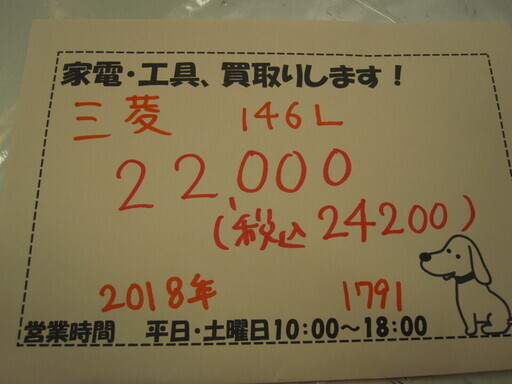 家電・工具、買取りします！
三菱 146L
22,000
(税込 24200)
2018年 1791
営業時間 平日・土曜日10:00～18:00